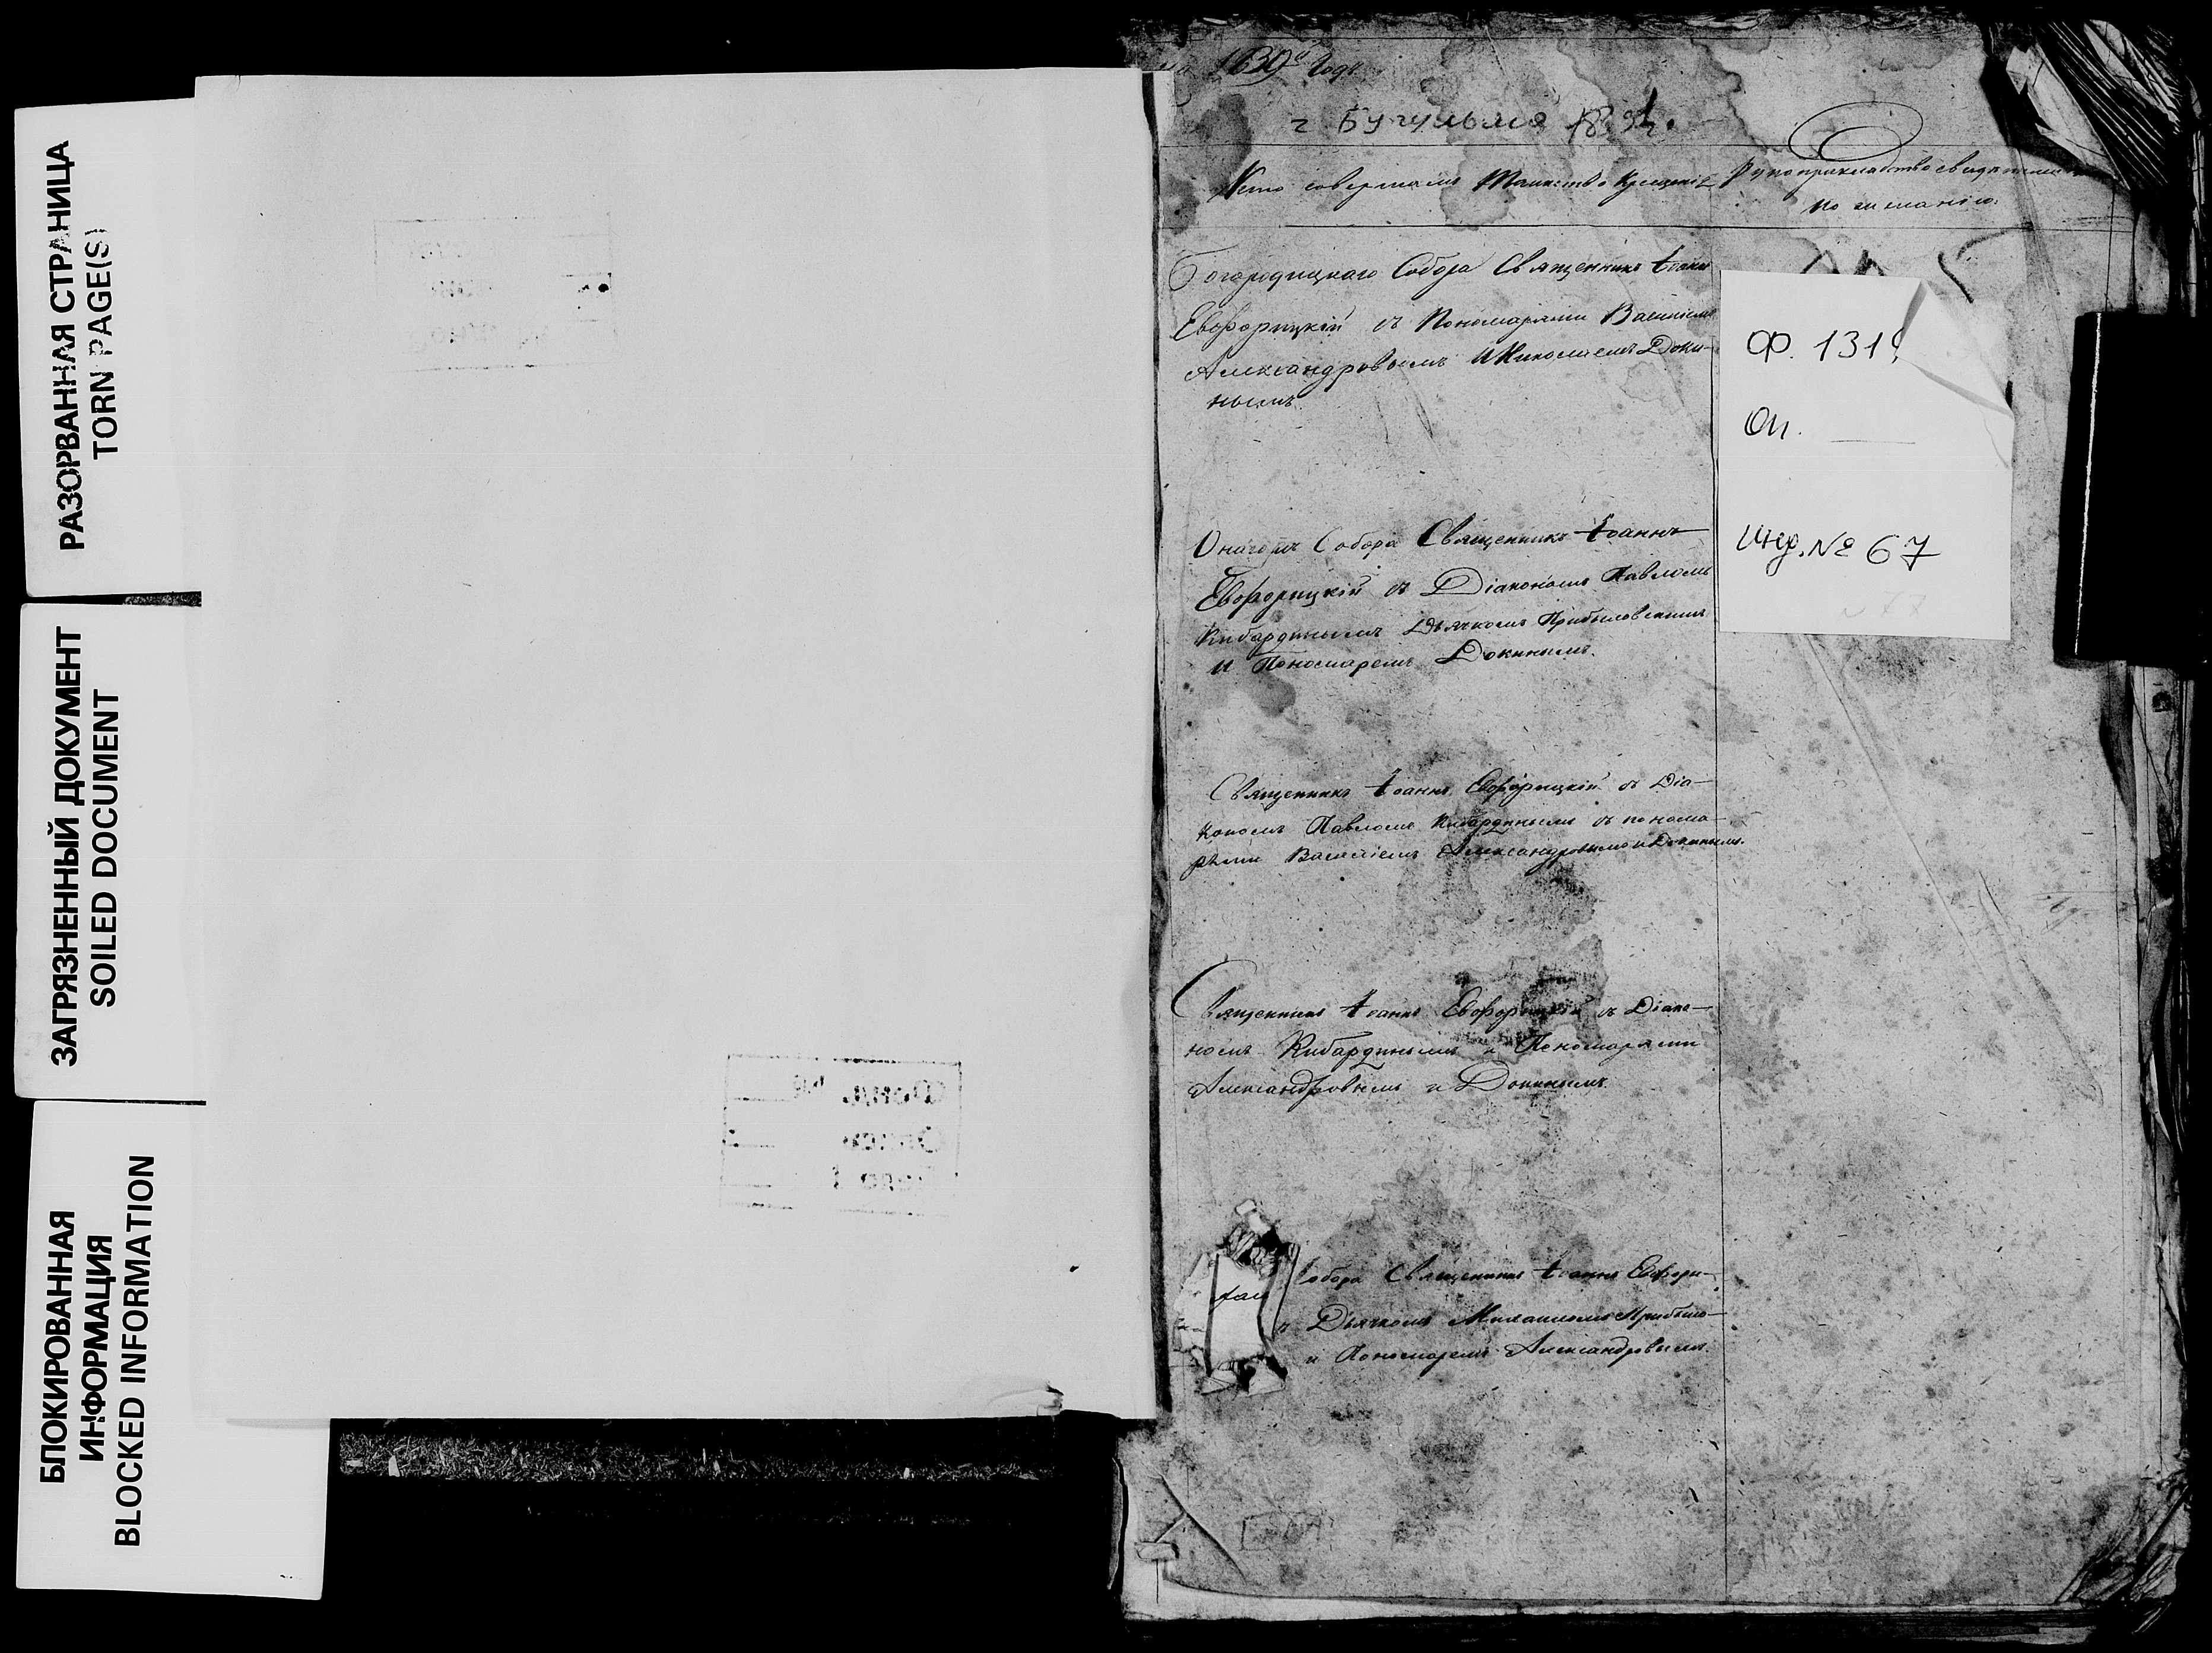 РАЗОРВАННАЯ СТРАНИЦА
TORN PAGE(S)
ЗАГРЯЗНЕННЫЙ ДОКУМЕНТ
SOILED DOCUMENT
БЛОКИРОВАННАЯ
ИНФОРМАЦИЯ
BLOCKED INFORMATION
1839 Годъ
г Бугульма
Кто совершалъ Таинство Крещенія
Рукоприкладство свидѣтелей
по желанію.
Богородицкаго Собора Священникъ Іоаннъ
Евфорицкій съ Пономарями Василіемъ
Александровымъ и Николаемъ Доки-
нымъ
Ф. 131
Оп.
Инд. № 67
Собора Священникъ Іоаннъ
Евфорицкій съ Діакономъ Павломъ
Кибардинымъ Дьячкомъ Прибыловскимъ
и Пономаремъ Докинымъ.
Священникъ Іоаннъ Евфорицкій съ Діа-
кономъ Павломъ Кибардинымъ съ понома-
рями Василіемъ Александровымъ и Докинымъ.
Священникъ Іоаннъ Евфорицкій съ Діако-
номъ Кибардинымъ и Пономарями
Александровымъ и Докинымъ.
Собора Священникъ Іоаннъ Евфори-
Дьячкомъ Михаиломъ Прибыло-
и Пономаремъ Александровымъ.